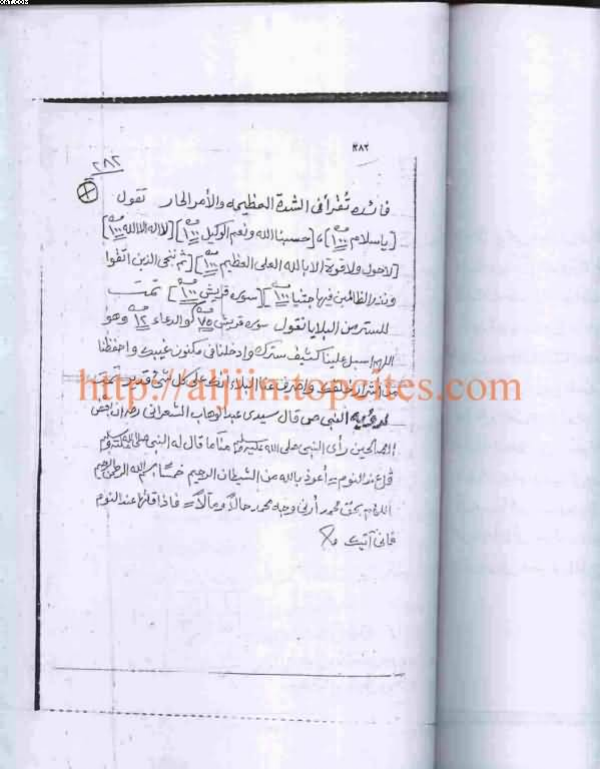 ٢٨٢
٢٨٢
فائده تُقرأ فى الشدة العظيمه والأمر الحار تقول
[ياسلام ١٠٠]، [حسبنا الله ونعم الوكيل ١٠٠] [لااله الاالله ١٠٠]
[لاحول ولاقوة الا بالله العلى العظيم ١٠٠] [ثم ننجى الذين اتقوا
ونذر الظالمين فيها جثيا ١٠٠] [سوره قريش ١٠٠] تمت
للستر من البلايا تقول سوره قريش ٧٥ والدعاء ١٢ وهو
اللهم اسبل علينا كثيف سترك وادخلنا فى مكنون غيبك واحفظنا
من واصرف عنا البلاء انك على كل شئ قدير تمت
لرؤيه النبى ص قال سيدى عبد الوهاب الشعرانى ان بعض
الصالحين رأى النبى صلى الله عليه وسلم مناما قال له النبى صلى الله عليه وسلم
قل عند النوم أعوذ بالله من الشيطان الرجيم خمسا بسم الله الرحمن الرحيم
اللهم بحق محمد أرنى وجه محمد حالاً ومآلاً فاذا قلتها عند النوم
فانى آتيك
http://aljiin.topcites.com